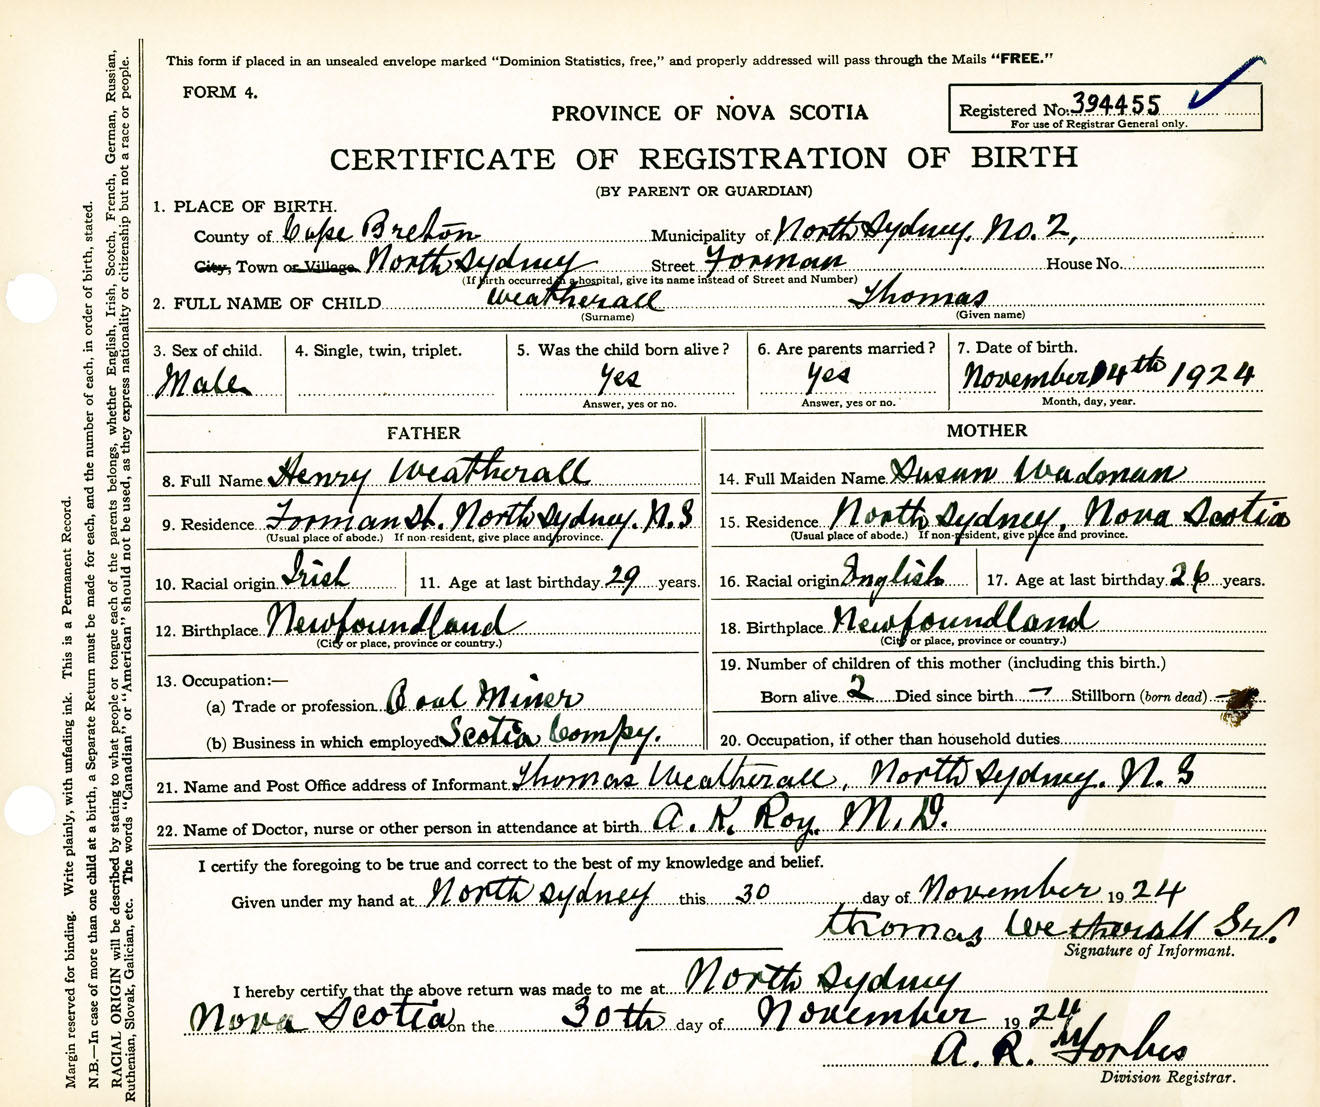 This form if placed in an unsealed envelope marked “Dominion Statistics, free,” and properly addressed will pass through the Mails “FREE.”
FORM 4.
PROVINCE OF NOVA SCOTIA
Registered No. 394455
For use of Registrar General only.
CERTIFICATE OF REGISTRATION OF BIRTH
(BY PARENT OR GUARDIAN)
1. PLACE OF BIRTH.
County of Cape Breton Municipality of North Sydney. No. 2,
City, Town or Village. North Sydney Street Forman House No.
(If birth occurred in a hospital, give its name instead of Street and Number)
2. FULL NAME OF CHILD Weatherall Thomas
(Surname) (Given name)
3. Sex of child. 4. Single, twin, triplet. 5. Was the child born alive? 6. Are parents married? 7. Date of birth.
Male Yes Yes November 4th 1924
Answer, yes or no. Answer, yes or no. Month, day, year.
FATHER
8. Full Name Henry Weatherall
9. Residence Forman St. North Sydney. N.S
(Usual place of abode.) If non-resident, give place and province.
10. Racial origin Irish 11. Age at last birthday 29 years.
12. Birthplace Newfoundland
(City or place, province or country.)
13. Occupation:—
(a) Trade or profession Coal Miner
(b) Business in which employed Scotia Compy.
MOTHER
14. Full Maiden Name Susan Wadman
15. Residence North Sydney, Nova Scotia
(Usual place of abode.) If non-resident, give place and province.
16. Racial origin Inglish 17. Age at last birthday 26 years.
18. Birthplace Newfoundland
(City or place, province or country.)
19. Number of children of this mother (including this birth.)
Born alive 2 Died since birth — Stillborn (born dead) —
20. Occupation, if other than household duties
21. Name and Post Office address of Informant Thomas Weatherall, North Sydney. N.S
22. Name of Doctor, nurse or other person in attendance at birth A. K. Roy. M.D.
I certify the foregoing to be true and correct to the best of my knowledge and belief.
Given under my hand at North Sydney this 30 day of November 1924
Thomas Wetherall Sr.
Signature of Informant.
I hereby certify that the above return was made to me at North Sydney
Nova Scotia on the 30th day of November 1924
A. R. Forbes
Division Registrar.
Margin reserved for binding. Write plainly, with unfading ink. This is a Permanent Record.
N.B.—In case of more than one child at a birth, a Separate Return must be made for each, and the number of each, in order of birth, stated.
RACIAL ORIGIN will be described by stating to what people or tongue each of the parents belongs, whether English, Irish, Scotch, French, German, Russian,
Ruthenian, Slovak, Galician, etc. The words “Canadian” or “American” should not be used, as they express nationality or citizenship but not a race or people.